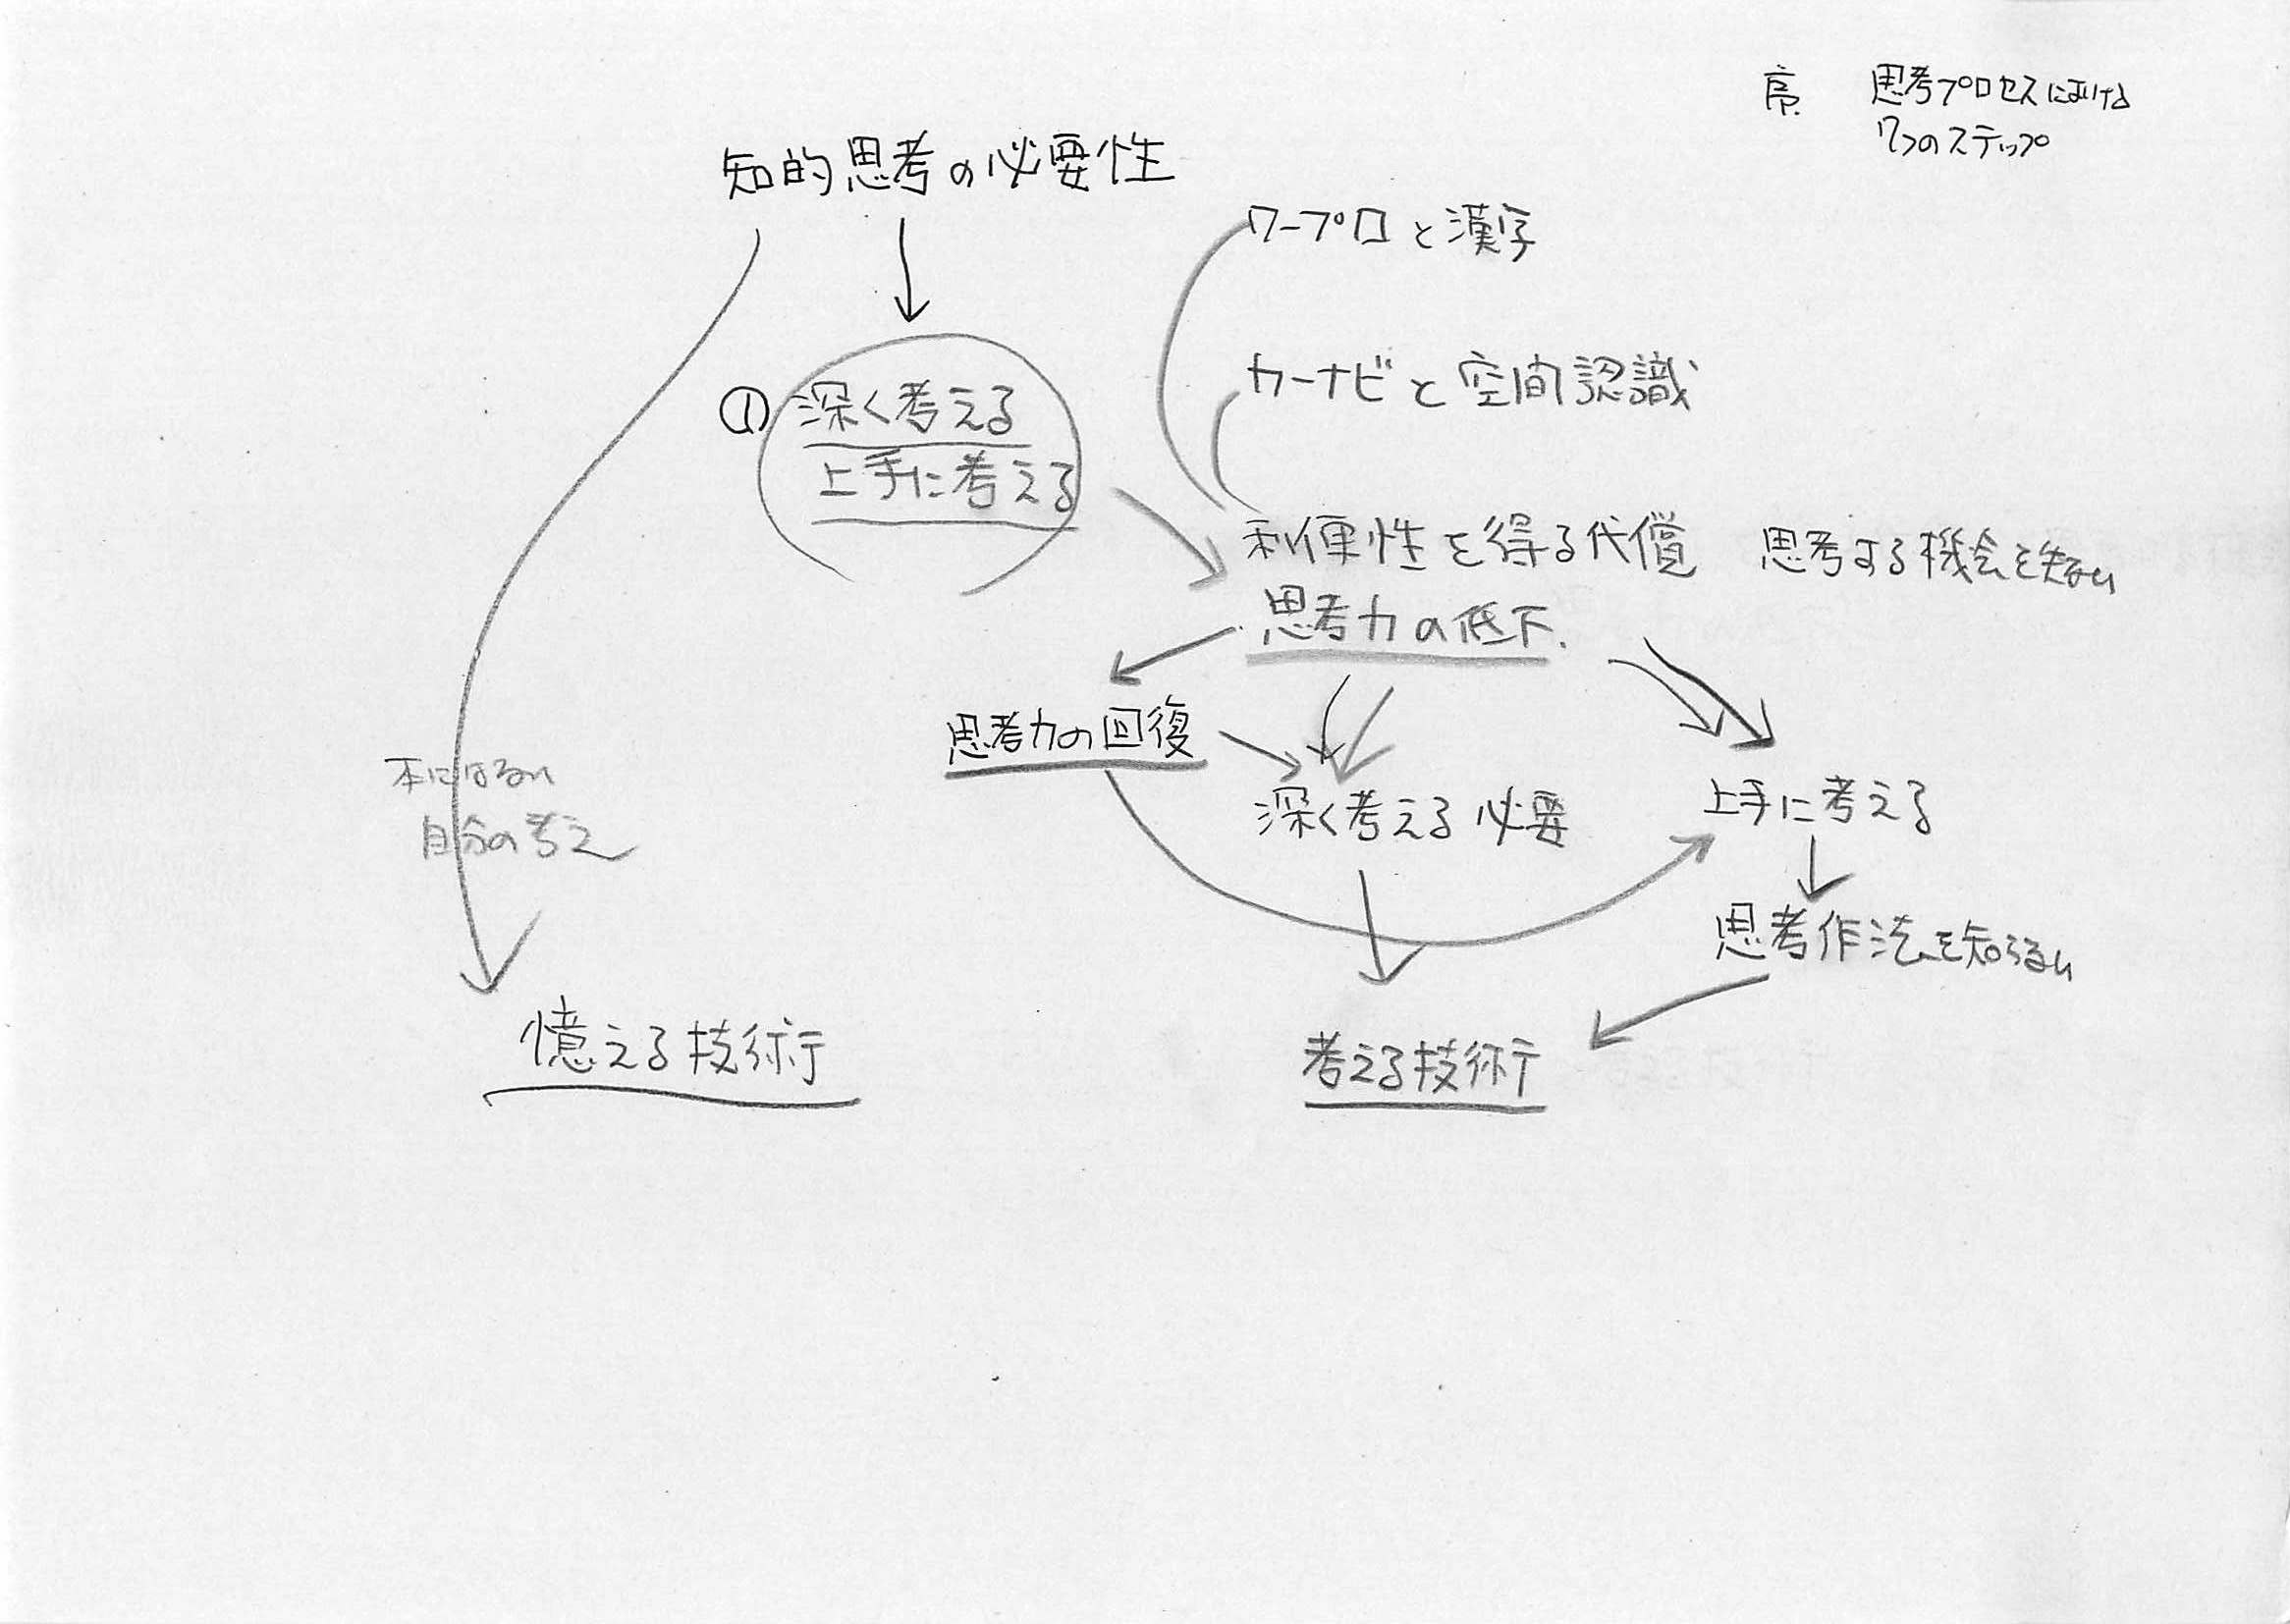 序. 思考プロセスにおける
7つのステップ
知的思考の必要性
ワープロと漢字
カーナビと空間認識
① 深く考える
上手に考える
利便性を得る代償 思考する機会を
思考力の低下.
思考力の回復
深く考える必要
上手に考える
本にはない
自分の考え
思考作法を知らない
憶える技術
考える技術